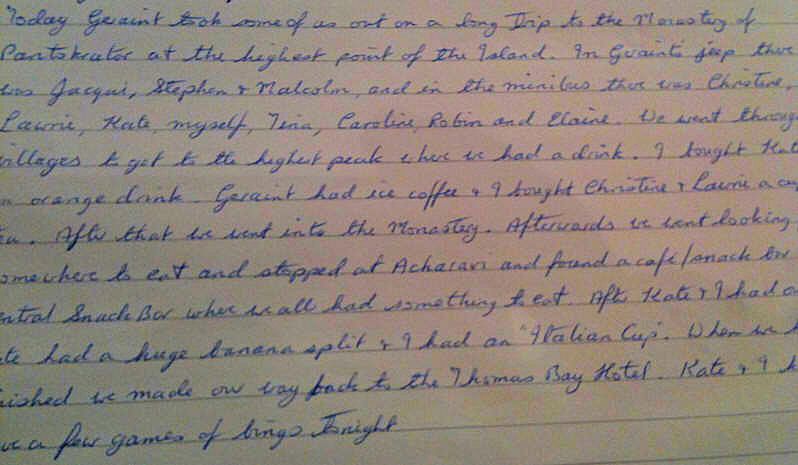 Today Geraint took some of us out on a long Trip to the Monastery of
Pantokrator at the highest point of the Island. In Geraints jeep there
was Jacqui, Stephen & Malcolm, and in the minibus there was Christine,
Lawrie, Kate, myself, Tina, Caroline, Robin and Elaine. We went through
villages to get to the highest peak where we had a drink. I bought Kate
an orange drink. Geraint had ice coffee & I bought Christine & Lawrie a cup
tea. After that we went into the Monastery. Afterwards we went looking
somewhere to eat and stopped at Acharavi and found a café/snack bar
entral Snack Bar where we all had something to eat. After Kate & I had
had a huge banana split & I had an "Italian Cup". When we
finished we made our way back to the Thomas Bay Hotel. Kate & I
a few games of bingo Tonight